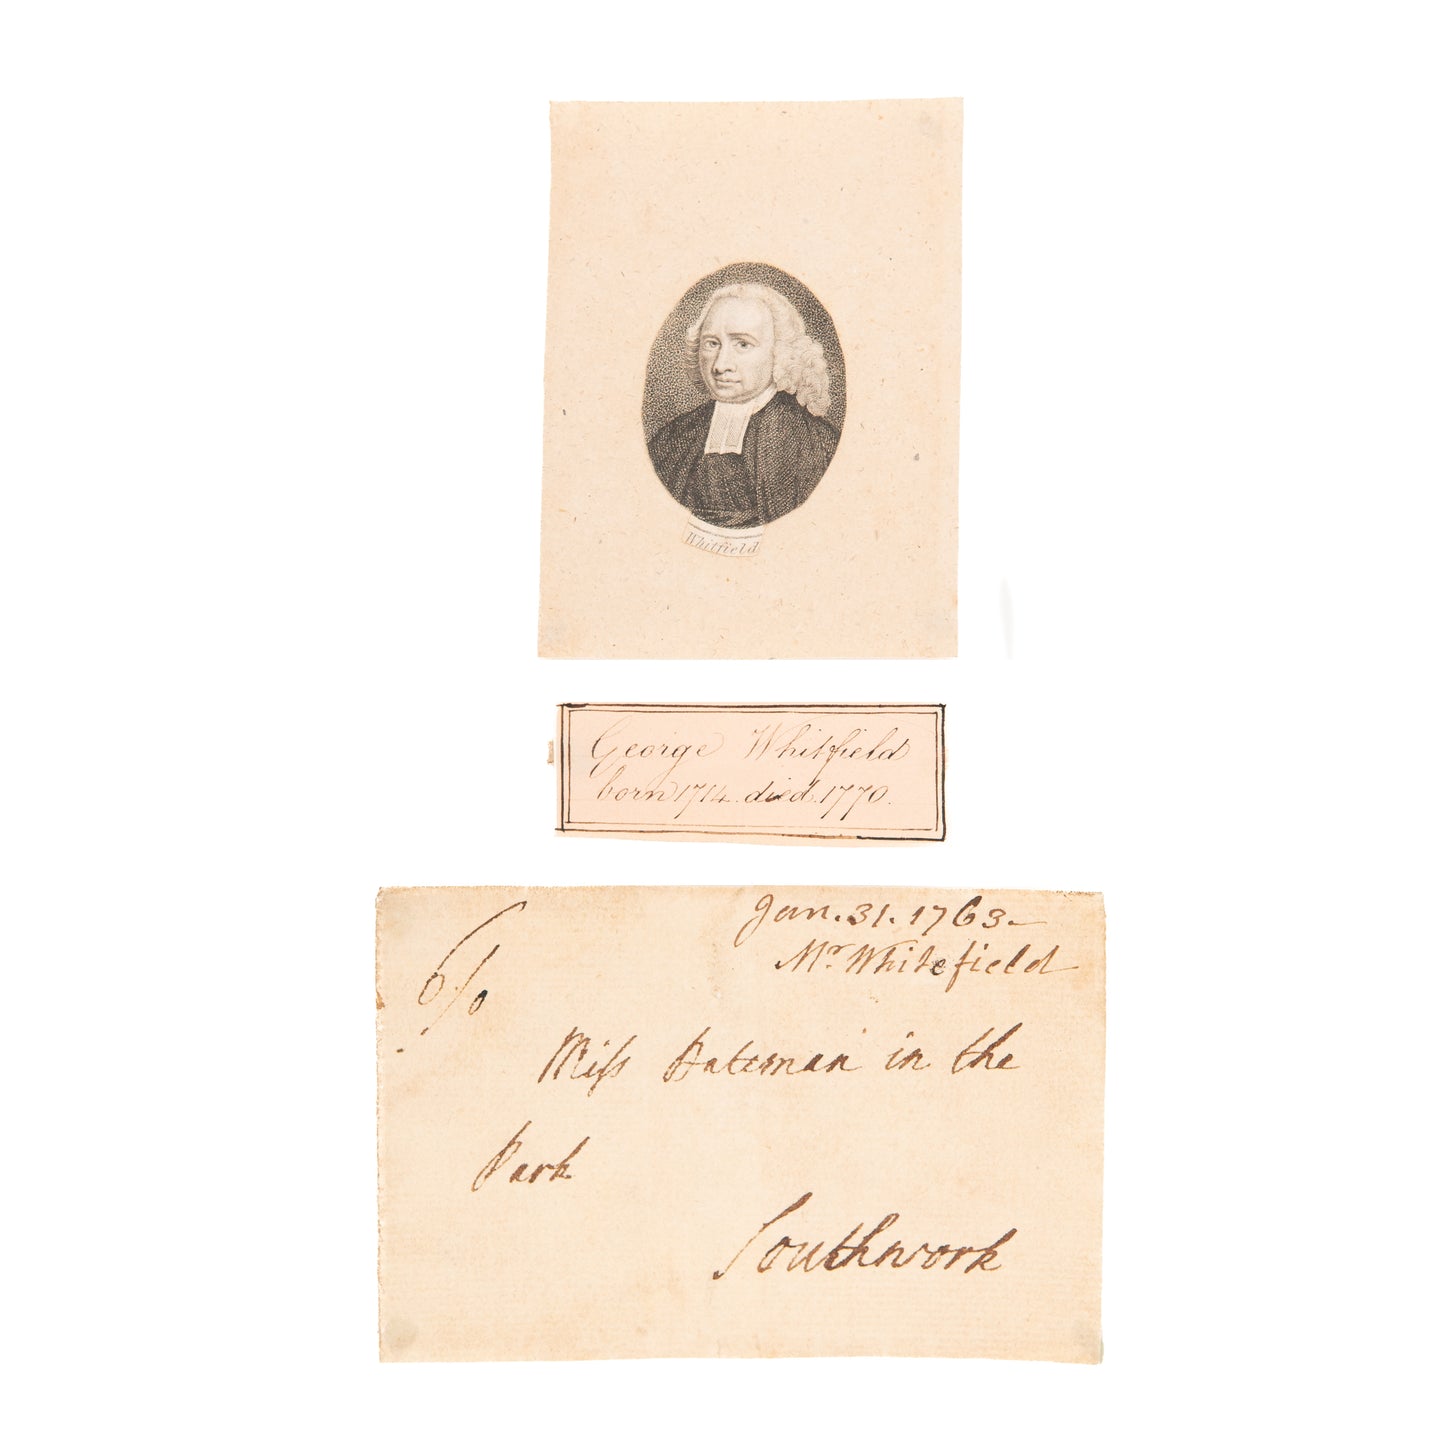 Whitfield
George Whitfield
born 1714. died. 1770.
Jan. 31. 1763.
Mr. Whitefield
Miſs Bateman in the
Park
Southwork